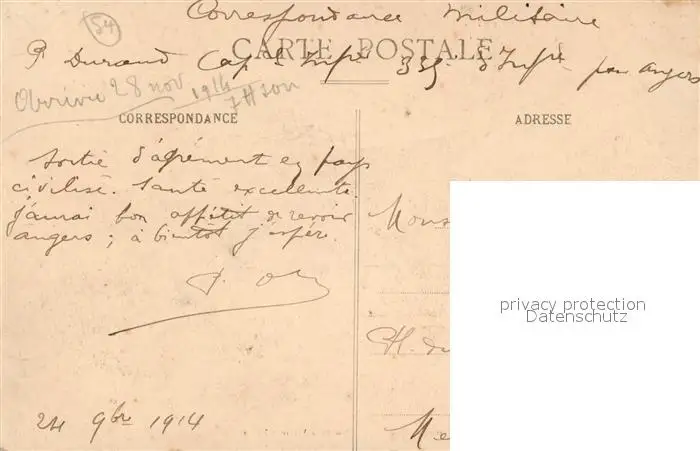 Correspondance Militaire
54
CARTE POSTALE
P Durand Cap. d'Infie d'Infie par Angers
28 nov 1914
CORRESPONDANCE
ADRESSE
Sortie d'agrément en pays
civilisé. Santé excellente
j'aurai bon appétit de revoir
angers ; à bientôt j'espère.
P.
Mons
H. du
24 9bre 1914
Me
privacy protection
Datenschutz